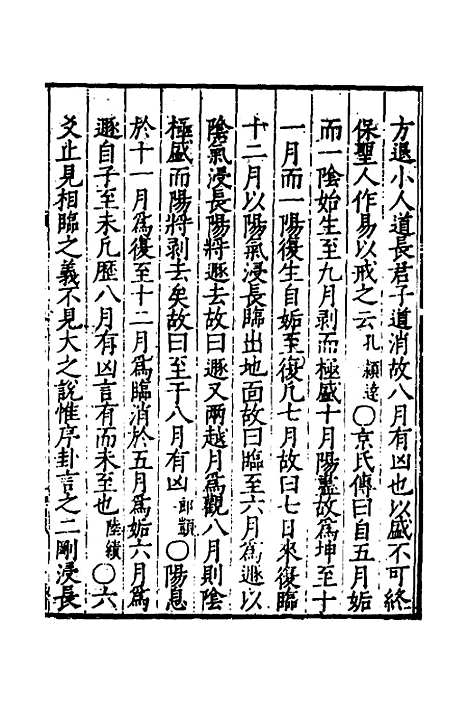 方退小人道長君子道消故八月有凶也以盛不可終
保聖人作易以戒之云孔頴逹〇京氏傳曰自五月姤
而一陰始生至九月剥而極盛十月陽盡故爲坤至十
一月而一陽復生自姤至復凡七月故曰七日來復臨
十二月以陽氣浸長臨出地面故曰臨至六月爲遯以
陰氣浸長陽將遯去故曰遯又兩越月爲觀八月則陰
極盛而陽將剥去矣故曰至于八月有凶郎顗〇陽息
於十一月爲復至十二月爲臨消於五月爲姤六月爲
遯自子至未凡歷八月有凶言有而未至也陸績〇六
爻止見相臨之義不見大之說惟序卦言之二剛浸長